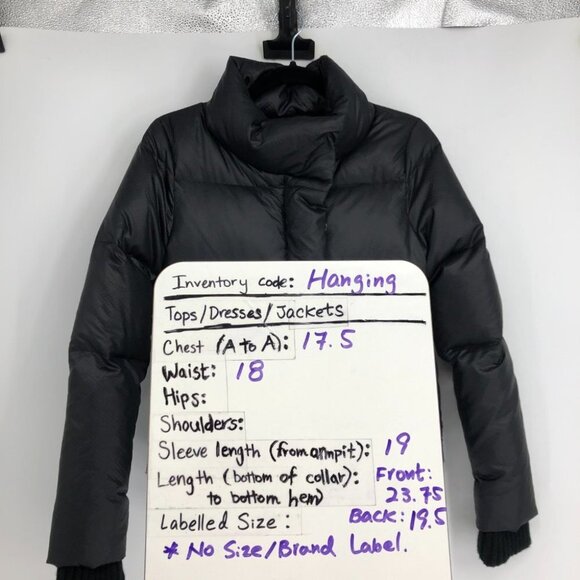 Inventory code: Hanging
Tops/Dresses/Jackets
Chest (A to A): 17.5
Waist: 18
Hips:
Shoulders:
Sleeve length (from armpit): 19
Length (bottom of collar): Front:
to bottom hem) 23.75
Labelled Size: Back: 19.5
* No Size/Brand Label.